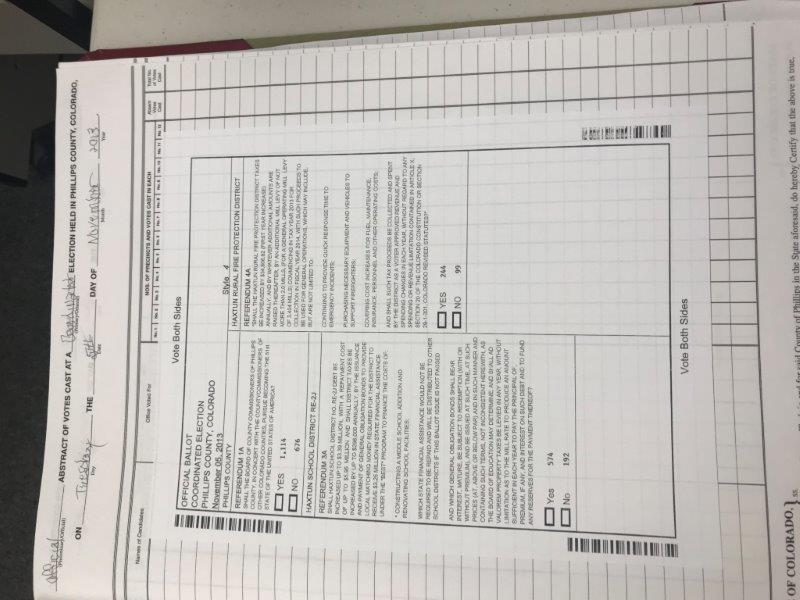 Official
ABSTRACT OF VOTES CAST AT A Coordinated ELECTION HELD IN PHILLIPS COUNTY, COLORADO,
ON Tuesday THE 5th DAY OF November 2013
Day Date Month Year
Names of Candidates
Office Voted For
NOS. OF PRECINCTS AND VOTES CAST IN EACH
No. 1 No. 2 No. 3 No. 4 No. 5 No. 6 No. 7 No. 8 No. 9 No. 10 No. 11 No. 12
Absent Votes Cast
Total No. of Votes Cast
Vote Both Sides
OFFICIAL BALLOT
COORDINATED ELECTION
PHILLIPS COUNTY, COLORADO
November 05, 2013 Style 4
PHILLIPS COUNTY
REFERENDUM 1A
SHALL THE BOARD OF COUNTY COMMISSIONERS OF PHILLIPS
COUNTY, IN CONCERT WITH THE COUNTY COMMISSIONERS OF
OTHER COLORADO COUNTIES, PURSUE BECOMING THE 51st
STATE OF THE UNITED STATES OF AMERICA?
YES 1,114
NO 676
HAXTUN SCHOOL DISTRICT RE-2J
REFERENDUM 3A
SHALL HAXTUN SCHOOL DISTRICT NO. RE-2J DEBT BE
AND PAYMENT OF GENERAL OBLIGATION BONDS TO PROVIDE
LOCAL MATCHING MONEY REQUIRED FOR THE DISTRICT TO
UNDER THE "BEST" PROGRAM TO FINANCE THE COSTS OF:
* CONSTRUCTING A MIDDLE SCHOOL ADDITION AND
RENOVATING SCHOOL FACILITIES;
WHICH STATE FINANCIAL ASSISTANCE WOULD NOT BE
REQUIRED TO BE REPAID AND WILL BE DISTRIBUTED TO OTHER
SCHOOL DISTRICTS IF THIS BALLOT ISSUE IS NOT PASSED
AND WHICH GENERAL OBLIGATION BONDS SHALL BEAR
INTEREST, MATURE, BE SUBJECT TO REDEMPTION (WITH OR
WITHOUT PREMIUM), AND BE ISSUED AT SUCH TIME, AT SUCH
PRICES (AT ABOVE OR BELOW PAR) AND IN SUCH MANNER AND
CONTAINING SUCH TERMS, NOT INCONSISTENT HEREWITH, AS
THE BOARD OF EDUCATION MAY DETERMINE; AND SHALL AD
VALOREM PROPERTY TAXES BE LEVIED IN ANY YEAR, WITHOUT
LIMITATION AS TO THE MILL RATE TO PRODUCE AN AMOUNT
SUFFICIENT IN EACH YEAR TO PAY THE PRINCIPAL OF,
PREMIUM, IF ANY, AND INTEREST ON SUCH DEBT AND TO FUND
ANY RESERVES FOR THE PAYMENT THEREOF?
Yes 574
No 192
HAXTUN RURAL FIRE PROTECTION DISTRICT
REFERENDUM 4A
"SHALL THE HAXTUN RURAL FIRE PROTECTION DISTRICT TAXES
ANNUALLY, AND BY WHATEVER ADDITIONAL AMOUNTS ARE
RAISED THEREAFTER, BY AN ADDITIONAL MILL LEVY OF NOT
COLLECTION IN FISCAL YEAR 2014, WITH SUCH PROCEEDS TO
BE USED FOR GENERAL OPERATIONS, WHICH MAY INCLUDE,
BUT ARE NOT LIMITED TO:
CONTINUING TO PROVIDE QUICK RESPONSE TIME TO
EMERGENCY INCIDENTS;
PURCHASING NECESSARY EQUIPMENT AND VEHICLES TO
SUPPORT FIREFIGHTERS;
COVERING COST INCREASES FOR FUEL, MAINTENANCE,
INSURANCE, PERSONNEL AND OTHER OPERATING COSTS;
AND SHALL SUCH TAX PROCEEDS BE COLLECTED AND SPENT
BY THE DISTRICT AS A VOTER APPROVED REVENUE AND
SPENDING CHANGES IN EACH YEAR, WITHOUT REGARD TO ANY
SPENDING OR REVENUE LIMITATION CONTAINED IN ARTICLE X,
SECTION 20 OF THE COLORADO CONSTITUTION OR SECTION
29-1-301, COLORADO REVISED STATUTES?"
YES 244
NO 99
Vote Both Sides
OF COLORADO, } ss.
and for said County of Phillips in the State aforesaid, do hereby Certify that the above is true,